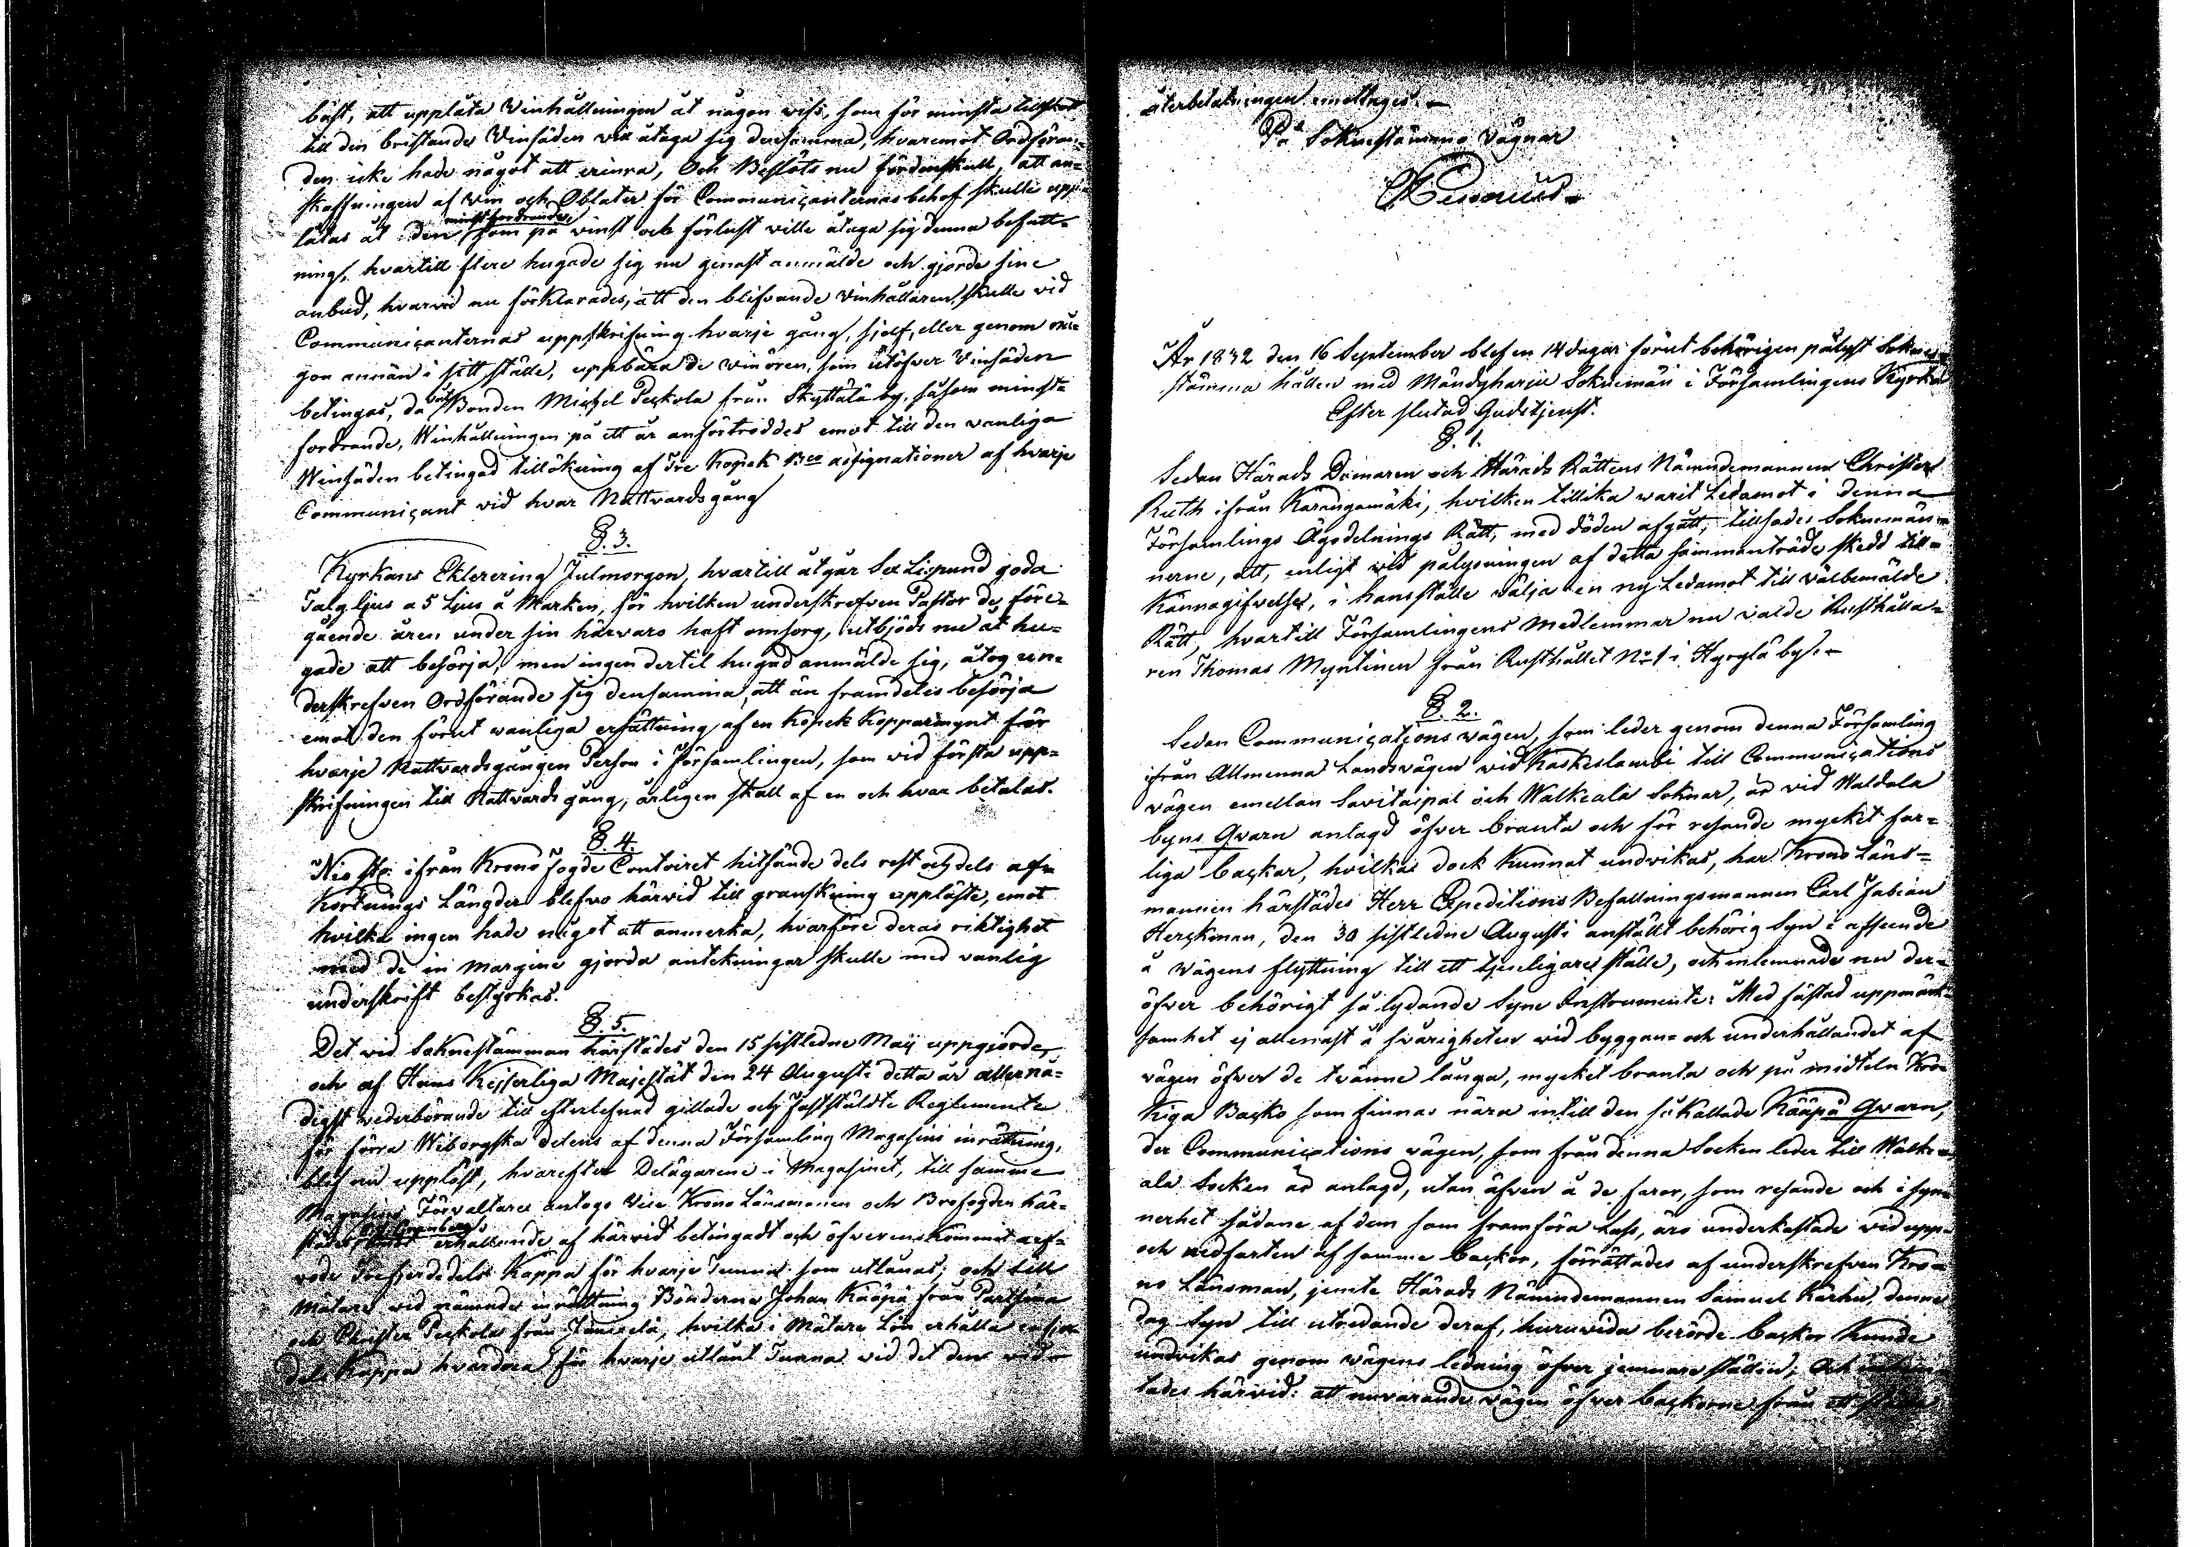 bäst, att upplåta Vinhållningen åt någon viss, som för minsta tillskott
till den bristande Vinsäden vill åtaga sig densamma, hvaremot Ordföran-
den icke hade något att erinra, Och Beslöts nu fördenskull, att an-
skaffningen af Vin och Oblater för Communiçanternas behof skulle upp-
låtas åt den minstfordrande, som på vinst och förlust ville åtaga sig denna befatt-
ning, hvartill flere hugade sig nu genast anmälde och gjorde sine
anbud, hvarvid nu förklarades, att den blifvande Vinhållaren skulle vid
Communiçanternas uppskrifning hvarje gång, sjelf, eller genom nå-
gon annan i sitt ställe, uppbära de vinören, som utöfver Vinsäden
betingas, då Bonden Michel Peskola från Skyttälä by, såsom minst
fordrande, Winhållningen på ett år anförtroddes emot till den vanliga
Winsäden betingad tillökning af Tre Kopek Bco assignationer af hvarje
Communiçant vid hvar Nattvardsgång
§. 3.
Kyrkans Eklerering Julmorgon, hvartill åtgår Sex Lispund goda
Talgljus a 5 Ljus å Marken, för hvilken underskrefven Pastor de före-
gående åren under sin härvaro haft omsorg, utbjöds nu åt hu-
gade att besörja, men ingen dertil hugad anmälde sig, åtog un-
derskrefven Ordförande sig densamma, att än framdeles besörja
emot den förut vanliga ersättning, af en Kopek Kopparmynt för
hvarje Nattvardsgången Person i Församlingen, som vid första upp-
skrifningen till Nattvardsgång, årligen skall af en och hvar betalas.
§. 4.
Nio st. ifrån Krono Fogde Contoiret hitsände dels rest och dels af-
Kortnings Längder blefvo härvid till granskning uppläste, emot
hvilka ingen hade något att anmerka, hvarföre deras riktighet
med de in margine gjorda antekningar skulle med vanlig
underskrift bestyrkas.
§. 5.
Det vid Soknestämman härstädes den 15 sistledne Maij uppgjorde,
och af Hans Kejserliga Majestät den 24 Augusti detta år allernå-
digst vederbörande till efterlefnad gillade och fastställdte Reglemente
för förra Wiborgska delens af denna Församling Magasins inrättning,
blef nu uppläst, hvarefter Delägarene i Magasinet, till samme
Magasins Förvaltare antogo Vice Krono Länsmannen och Brofogden här-
städes, erhållande af härvid betingadt och öfverenskommet arf-
vode Trefjerdedels Kappa för hvarje Tunna som utlånas; och till
Mätare vid nämnde inrättning Bönderna Johan Kääpä från Partsima
och Christer Peskola från, hvilka i Mätare Lön erhålla en fjer-
dels Kappa hvardera för hvarje utlånt Tunna vid det den vid
återbetalningen emottages.
På Soknestämmans Vägnar
År 1832 den 16 September blef en 14 dagar förut behörigen pålyst Sokne-
stämma hållen med Mändyharju Soknemän i Församlingens Kyrka
Efter slutad Gudstjenst.
§. 1.
Sedan Härads Domaren och Härads Rättens Nämndemannen Christer
Ruth ifrån Karangamäki, hvilken tillika varit Ledamot i denna
Församlings Ägodelnings Rätt, med döden afgått, tillsades Soknemän-
nerne, att, enligt vid pålysningen af detta sammanträde skedd till-
kännagifvelse, i hans ställe välja en ny Ledamot till välbemälde
Rätt, hvartill Församlingens medlemmar nu valde Rusthålla-
ren Thomas Myntinen från Rusthållet No 1 i Hyrylä by.
§. 2.
Sedan Communiçations vägen, som leder genom denna Församling
ifrån Allmenna Landsvägen vid Kaskeslambi till Communiçations
vägen emellan Savitaipal och Walkeala Soknar, är vid Waldola
byns Qvarn anlagd öfver branta och för resande mycket far-
liga backar, hvilka dock kunnat undvikas, har Krono Läns-
mannen härstädes Herr Expeditions Befallningsmannen Carl Fabian
Herckman, den 30 sistledne Augusti anställt behörig Syn i afseende
å vägens flyttning till ett tjenligare ställe, och inlemnade nu der-
öfver behörigt så lydande Syne Instrumente: Med fästad uppmärk-
samhet ej allenast å svårigheten vid byggan- och underhållandet af
vägen öfver de tvänne långa, mycket branta och på midteln kro-
kiga Backar som finnas nära intill den så kallade Kääpä Qvarn,
der Communications vägen, som från denna Socken leder till Walke-
ala Socken är anlagd, utan äfven å de faror, som resande och i syn-
nerhet sådane af dem som framföra Lass, äro underkastade vid upp-
och nedfarten af samme backar, förrättades af underskrefven Kro-
no Länsman, jemte Härads Nämndemannen Samuel Karhu, denne
dag Syn till utredande deraf, huruvida berörde backar kunde
undvikas genom vägens ledning öfver jemnare ställen; Och
tades härvid: att nuvarande vägen öfver backarne från ett ställe